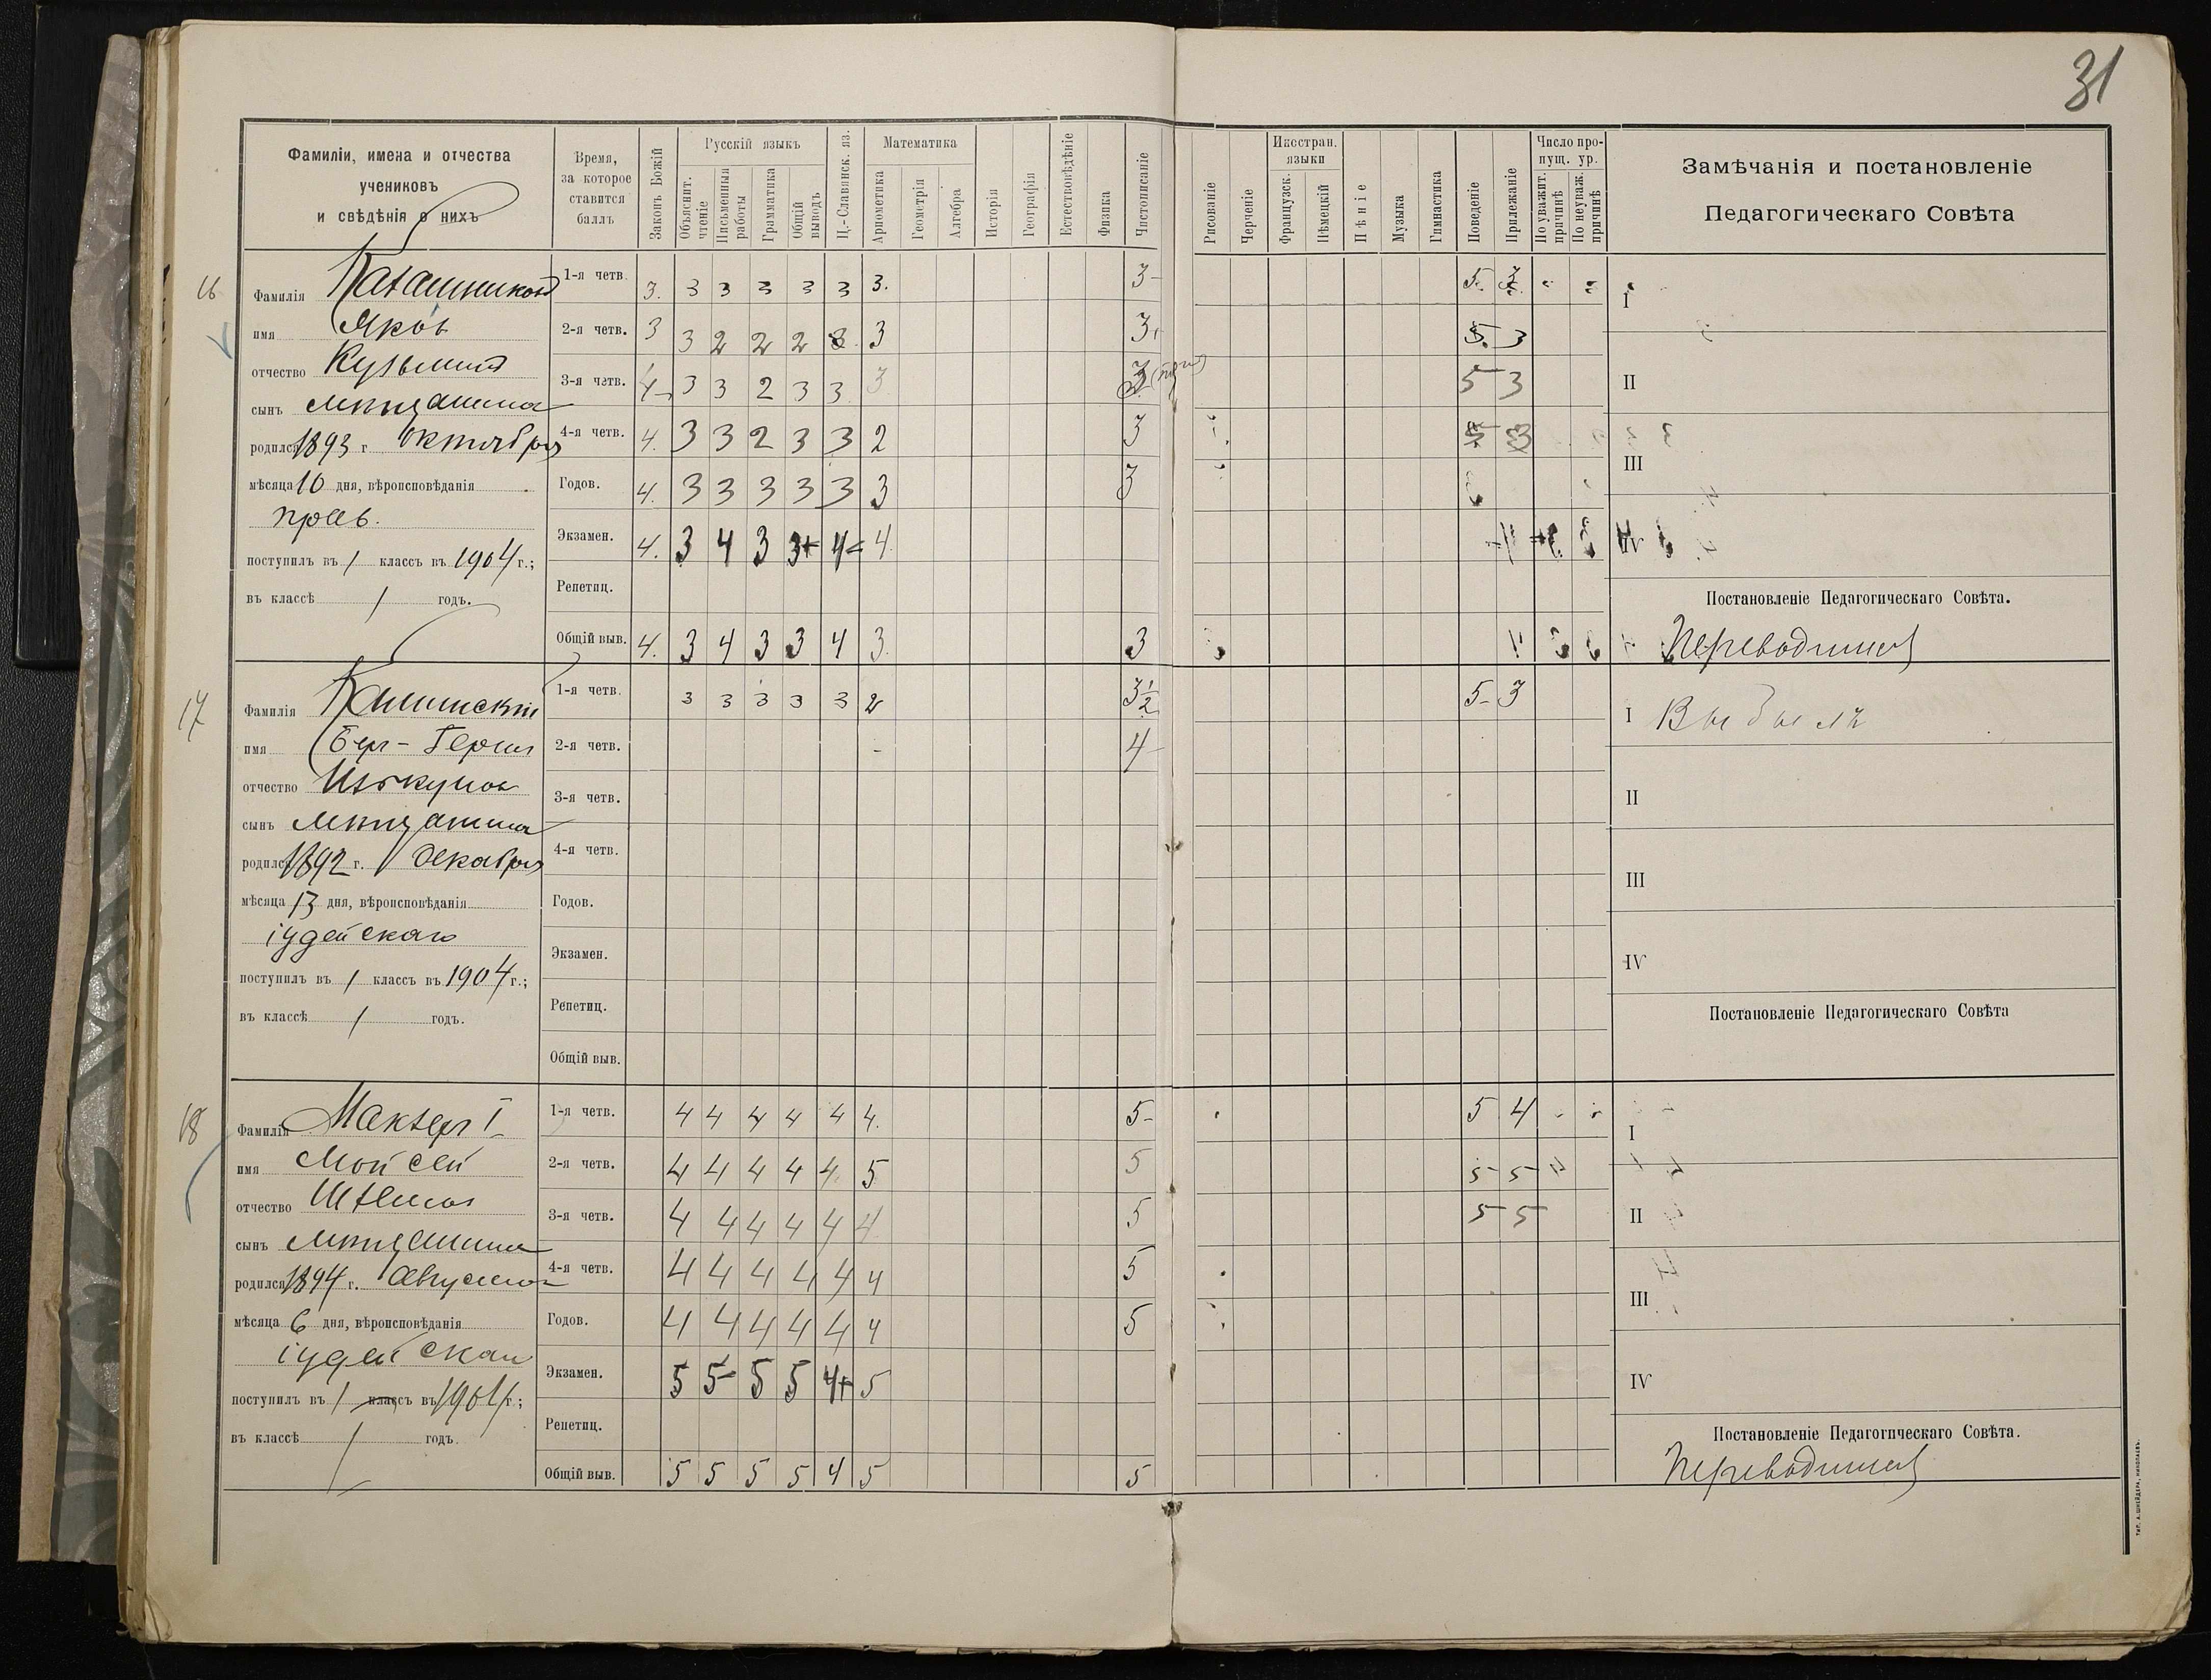 31
Фамиліи, имена и отчества
учениковъ
и свѣдѣнія о нихъ
Время,
за которое
ставится
баллъ
Законъ Божій
Русскій языкъ
Объяснит. чтеніе
Письменныя работы
Грамматика
Общій выводъ
Ц.-Славянск. яз.
Математика
Ариѳметика
Геометрія
Алгебра
Исторія
Географія
Естествовѣдѣніе
Физика
Чистописаніе
Рисованіе
Черченіе
Иностран.
языки
Французск.
Нѣмецкій
Пѣніе
Музыка
Гимнастика
Поведеніе
Прилежаніе
Число про-
пущ. ур.
По уважит. причинѣ
По неуваж. причинѣ
Замѣчанія и постановленіе
Педагогическаго Совѣта
16
Фамилія
имя Яковъ
отчество Кузьминъ
сынъ мѣщанина
родился 1893 г. октября
мѣсяца 10 дня, вѣроисповѣданія
прав.
поступилъ въ 1 классъ въ 1904 г.;
въ классѣ 1 годъ.
1-я четв. 3. 3 3 3 3 3 3. 3- 5. 3
2-я четв. 3 3 2 2 2 3 3 5. 3
3-я четв. 4- 3 3 2 3 3 3 3 5 3
4-я четв. 4. 3 3 2 3 3 2 3 5 3
Годов. 4. 3 3 3 3 3 3 3
Экзамен. 4. 3 4 3 3+ 4- 4
Репетиц.
Общій выв. 4. 3 4 3 3 4 3. 3
I
II
III
IV
Постановленіе Педагогическаго Совѣта.
Переводится
17
Фамилія
имя
отчество
сынъ мѣщанина
родился 1892 г. декабря
мѣсяца 13 дня, вѣроисповѣданія
іудейскаго
поступилъ въ 1 классъ въ 1904 г.;
въ классѣ 1 годъ.
1-я четв. 3 3 3 3 3 2 3½ 5- 3
2-я четв. 4-
3-я четв.
4-я четв.
Годов.
Экзамен.
Репетиц.
Общій выв.
I Выбылъ
II
III
IV
Постановленіе Педагогическаго Совѣта
18
Фамилія
имя Мойсей
отчество
сынъ мѣщанина
родился 1894 г. Августа
мѣсяца 6 дня, вѣроисповѣданія
іудейскаго
поступилъ въ 1 классъ въ 1904 г.;
въ классѣ 1 годъ.
1-я четв. 4 4 4 4 4 4. 5- 5 4
2-я четв. 4 4 4 4 4. 5 5 5 5
3-я четв. 4 4 4 4 4 4 5 5 5
4-я четв. 4 4 4 4 4 4 5
Годов. 4 4 4 4 4 4 5
Экзамен. 5 5- 5 5 4+ 5
Репетиц.
Общій выв. 5 5 5 5 4 5 5
I
II
III
IV
Постановленіе Педагогическаго Совѣта.
Переводится
ТИП. А. ШНЕЙДЕРА, НИКОЛАЕВЪ.